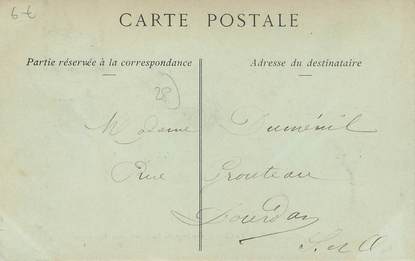 6€
CARTE POSTALE
Partie réservée à la correspondance
Adresse du destinataire
28
Madame Duménil
Rue Grouteau
Dourdan
S et O